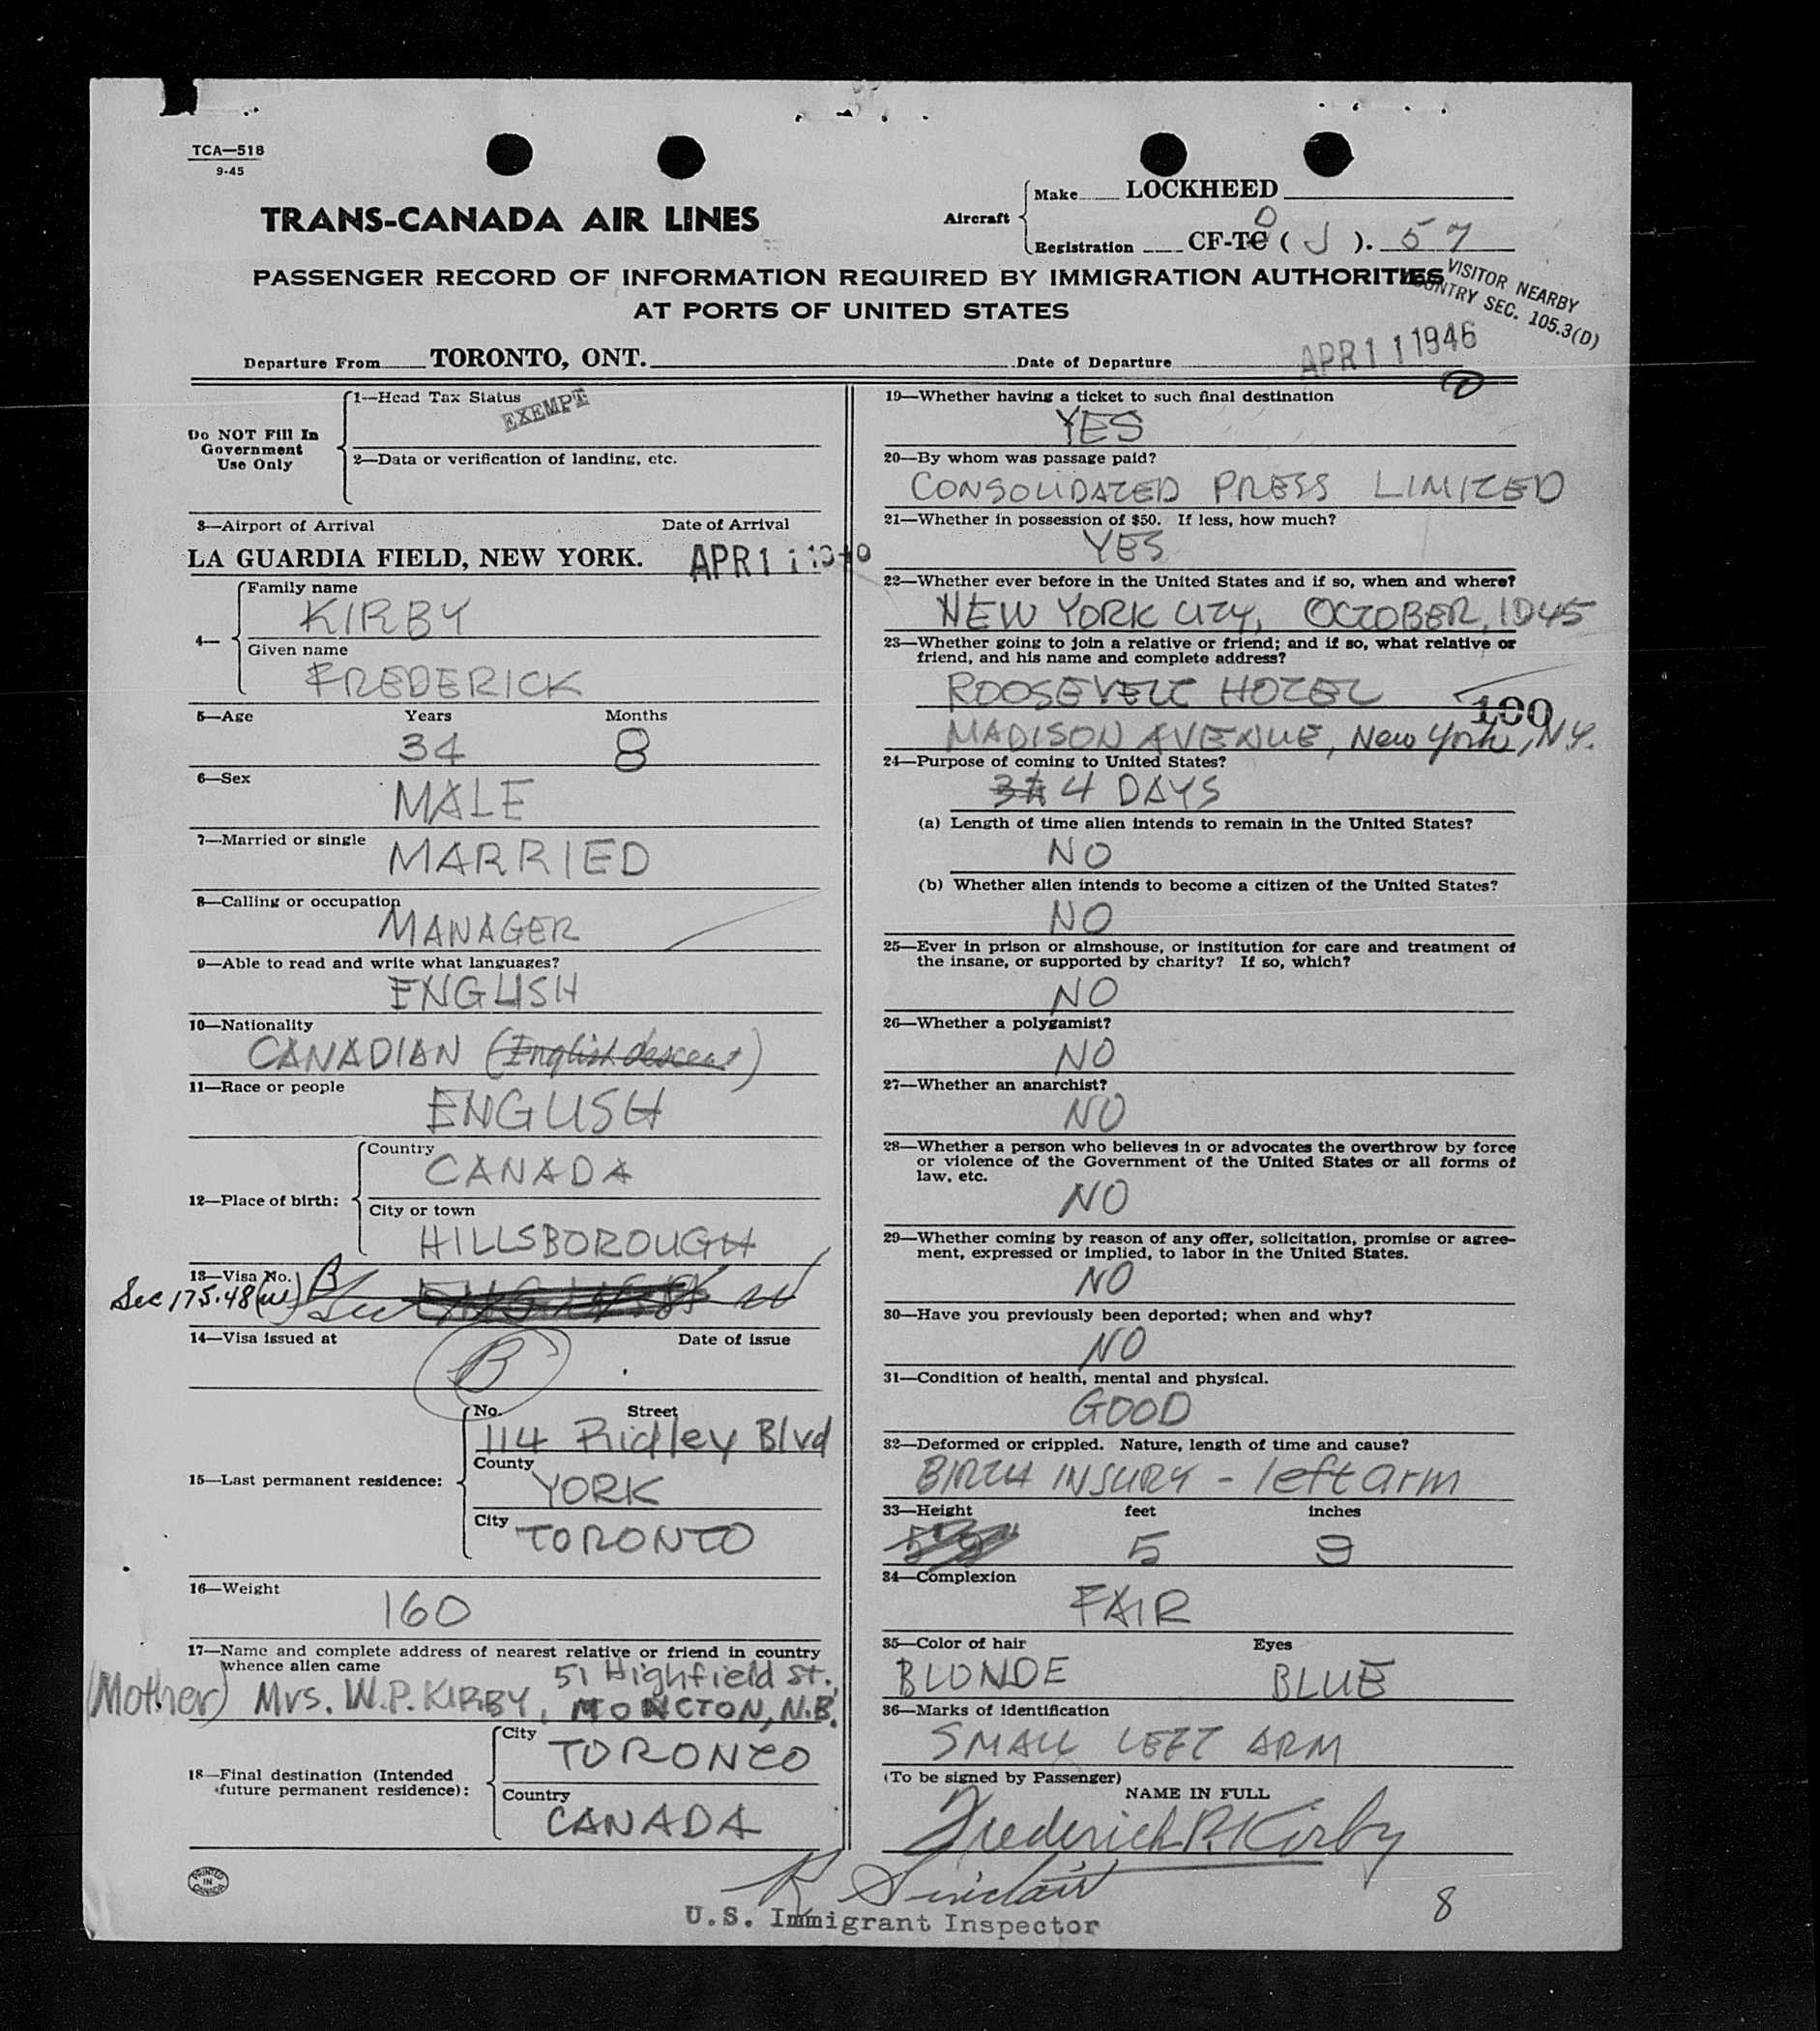 TCA—518
9-45
TRANS-CANADA AIR LINES
Aircraft
Make LOCKHEED
Registration CF-TC D ( J ). 57
PASSENGER RECORD OF INFORMATION REQUIRED BY IMMIGRATION AUTHORITIES
AT PORTS OF UNITED STATES
VISITOR NEARBY
COUNTRY SEC. 105.3(D)
Departure From TORONTO, ONT. Date of Departure APR 11 1946
Do NOT Fill In
Government
Use Only
1—Head Tax Status
EXEMPT
2—Data or verification of landing, etc.
3—Airport of Arrival Date of Arrival
LA GUARDIA FIELD, NEW YORK. APR 11 1946
4—
Family name
KIRBY
Given name
FREDERICK
5—Age Years Months
34 8
6—Sex
MALE
7—Married or single
MARRIED
8—Calling or occupation
MANAGER
9—Able to read and write what languages?
ENGLISH
10—Nationality
CANADIAN (English descent)
11—Race or people
ENGLISH
12—Place of birth:
Country
CANADA
City or town
HILLSBOROUGH
13—Visa No. B
Sec 175.48(w)
14—Visa issued at Date of issue
B
15—Last permanent residence:
No. Street
114 Ridley Blvd
County
YORK
City
TORONTO
16—Weight
160
17—Name and complete address of nearest relative or friend in country
whence alien came
51 Highfield St.,
(Mother) Mrs. W.P. KIRBY, MONCTON, N.B.
18—Final destination (Intended
future permanent residence):
City
TORONTO
Country
CANADA
PRINTED
IN
CANADA
19—Whether having a ticket to such final destination
YES
20—By whom was passage paid?
CONSOLIDATED PRESS LIMITED
21—Whether in possession of $50. If less, how much?
YES
22—Whether ever before in the United States and if so, when and where?
NEW YORK CITY, OCTOBER, 1945
23—Whether going to join a relative or friend; and if so, what relative or
friend, and his name and complete address?
ROOSEVELT HOTEL
100
MADISON AVENUE, New York, N.Y.
24—Purpose of coming to United States?
4 DAYS
(a) Length of time alien intends to remain in the United States?
NO
(b) Whether alien intends to become a citizen of the United States?
NO
25—Ever in prison or almshouse, or institution for care and treatment of
the insane, or supported by charity? If so, which?
NO
26—Whether a polygamist?
NO
27—Whether an anarchist?
NO
28—Whether a person who believes in or advocates the overthrow by force
or violence of the Government of the United States or all forms of
law, etc.
NO
29—Whether coming by reason of any offer, solicitation, promise or agree-
ment, expressed or implied, to labor in the United States.
NO
30—Have you previously been deported; when and why?
NO
31—Condition of health, mental and physical.
GOOD
32—Deformed or crippled. Nature, length of time and cause?
BIRTH INJURY - left arm
33—Height feet inches
5 9
34—Complexion
FAIR
35—Color of hair Eyes
BLONDE BLUE
36—Marks of identification
SMALL LEFT ARM
(To be signed by Passenger)
NAME IN FULL
Frederick P. Kirby
R Sinclair
U.S. Immigrant Inspector
8